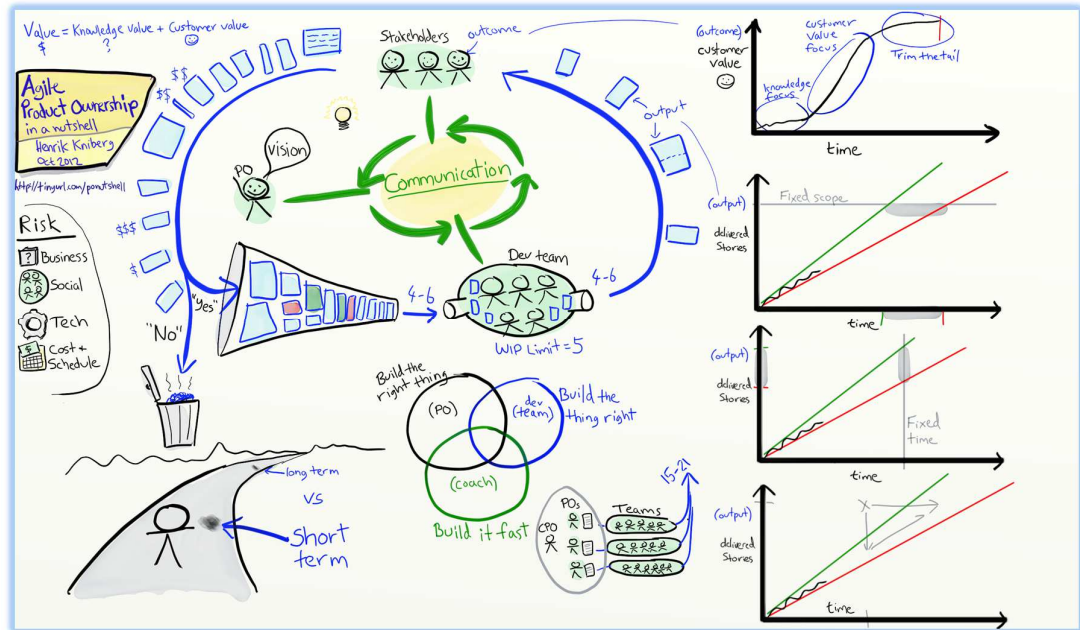 Value = Knowledge value + Customer value
$
?
Agile
Product Ownership
in a nutshell
Henrik Kniberg
Oct 2012
http://tinyurl.com/ponutshell
$$
$$
$$$
$
Risk
?
Business
Social
Tech
$
Cost +
Schedule
"Yes"
"No"
Stakeholders
outcome
PO
vision
Communication
output
4-6
Dev team
4-6
WIP Limit = 5
Build the
right thing
(PO)
dev
(team)
Build the
thing right
(coach)
Build it fast
long term
vs
Short
term
CPO
POs
Teams
15-21
(outcome)
customer
value
knowledge
focus
customer
value
focus
Trim the tail
time
(output)
delivered
Stories
Fixed scope
time
(output)
delivered
Stories
Fixed
time
time
(output)
delivered
Stories
X
time